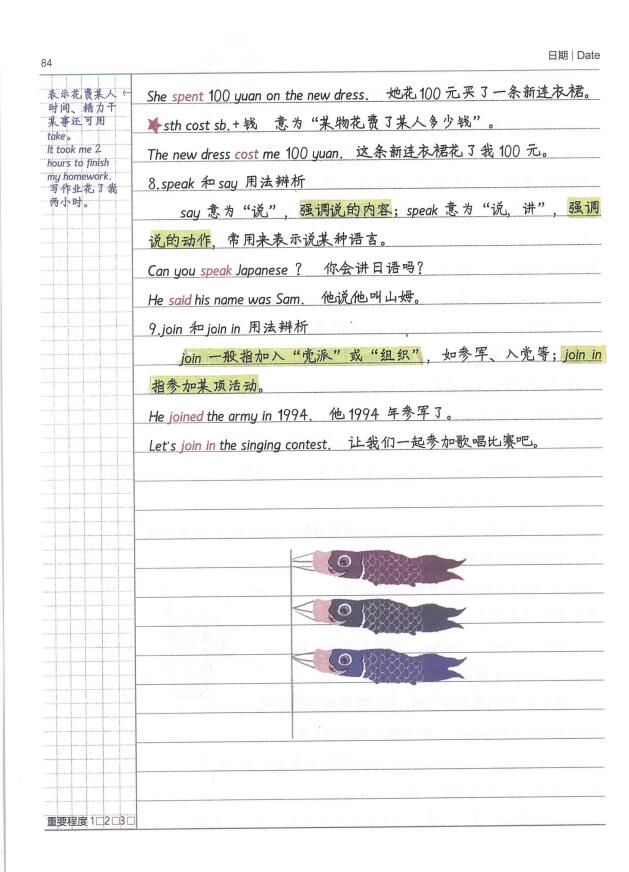 84
日期 | Date
表示花费某人
时间、精力干
某事还可用
take。
It took me 2
hours to finish
my homework.
写作业花了我
两小时。
She spent 100 yuan on the new dress. 她花100元买了一条新连衣裙。
★sth cost sb.+钱 意为“某物花费了某人多少钱”。
The new dress cost me 100 yuan. 这条新连衣裙花了我100元。
8.speak 和 say 用法辨析
say 意为“说”，强调说的内容；speak 意为“说，讲”，强调
说的动作，常用来表示说某种语言。
Can you speak Japanese？ 你会讲日语吗？
He said his name was Sam. 他说他叫山姆。
9.join 和 join in 用法辨析
join 一般指加入“党派”或“组织”，如参军、入党等；join in
指参加某项活动。
He joined the army in 1994. 他1994年参军了。
Let's join in the singing contest. 让我们一起参加歌唱比赛吧。
重要程度 1□2□3□